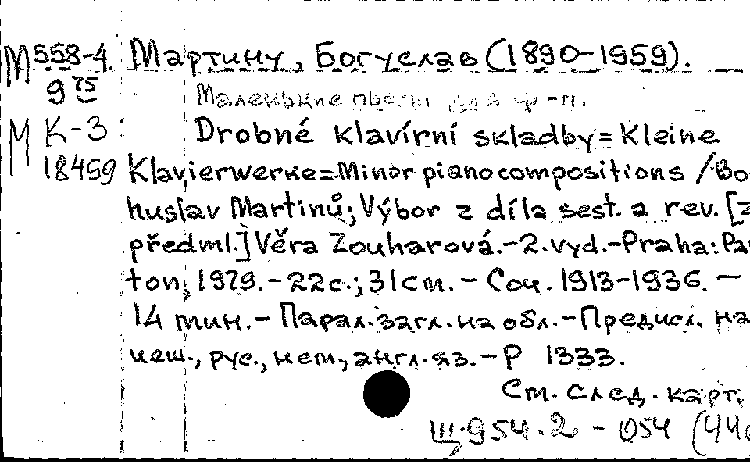 М 558-4 Мартину, Богуслав (1890-1959).
9 75 Маленькие пьесы для ф-п.
М К-3 Drobné klavírní skladby = Kleine
18459 Klavierwerke = Minor piano compositions / Bo-
huslav Martinů; Výbor z díla sest. a rev. [z
předml.] Věra Zouharová. - 2. vyd. - Praha: Pan
ton, 1979. - 22 с.; 31 см. - Соч. 1913-1936. —
14 мин. - Парал. загл. на обл. - Предисл. на
чеш., рус., нем., англ. яз. - Р 1333.
См. след. карт.
Щ 954.2 - 054 (44